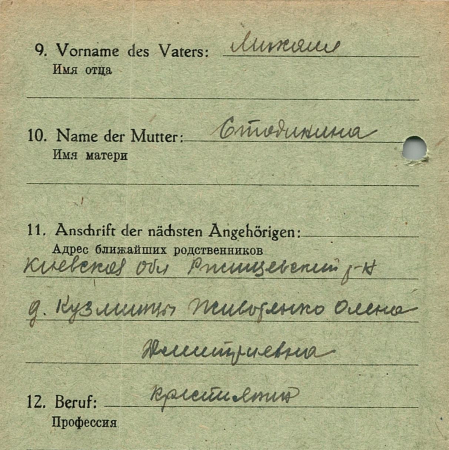 9. Vorname des Vaters: Михаил
Имя отца
10. Name der Mutter: Стодикина
Имя матери
11. Anschrift der nächsten Angehörigen:
Адрес ближайших родственников
Киевская обл Ржищевский р-н
д. Кузминцы Животенко Олена
Дмитриевна
12. Beruf: крестиянин
Профессия